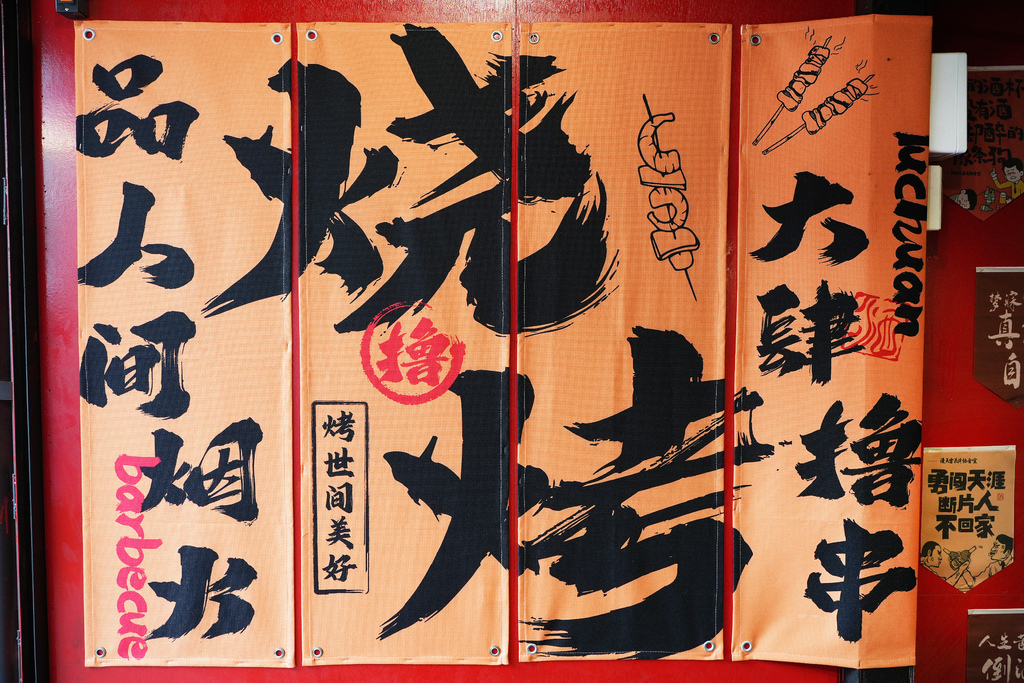 品人间烟火
barbecue
烧烤
撸
烤世间美好
大肆撸串
luchuan
酒
勇闯天涯
断片人
不回家